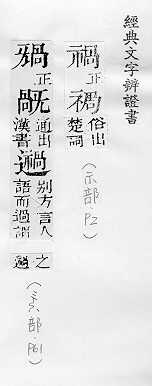 經典文字辨證書
禍
正
俗出
楚詞
(示部 P2)
正
旤
通出
漢書
別方言人
語而過謂
之
(旡部 P61)